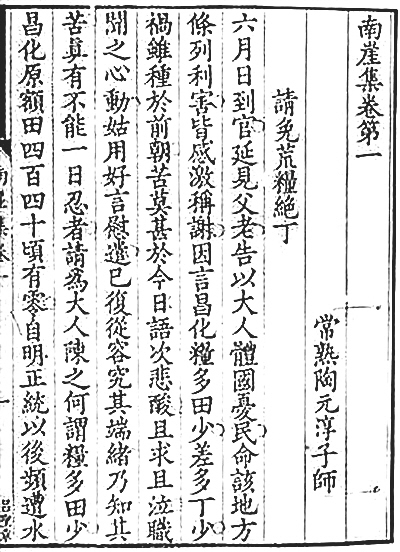 南崖集卷第一
常熟陶元淳子師
請免荒糧絶丁
六月日到官延見父老告以大人體國憂民命該地方
條列利害皆感激稱謝因言昌化糧多田少差多丁少
禍雖種於前朝苦莫甚於今日語次悲酸且求且泣職
聞之心動姑用好言慰遣已復從容究其端緒乃知其
苦眞有不能一日忍者請爲大人陳之何謂糧多田少
昌化原額田四百四十頃有零自明正統以後頻遭水